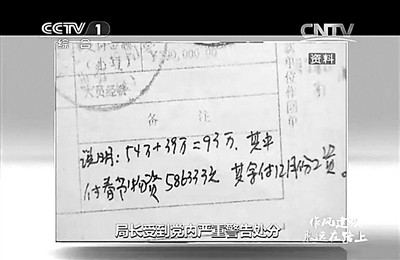 CCTV 1
综合
CNTV
资料
金额
(小写)
¥ 930,000.00
备注
说明：54万+39万=93万．其中
付春节物资586333元 其余付12月份工资。
局长受到党内严重警告处分
作风建设
永远在路上